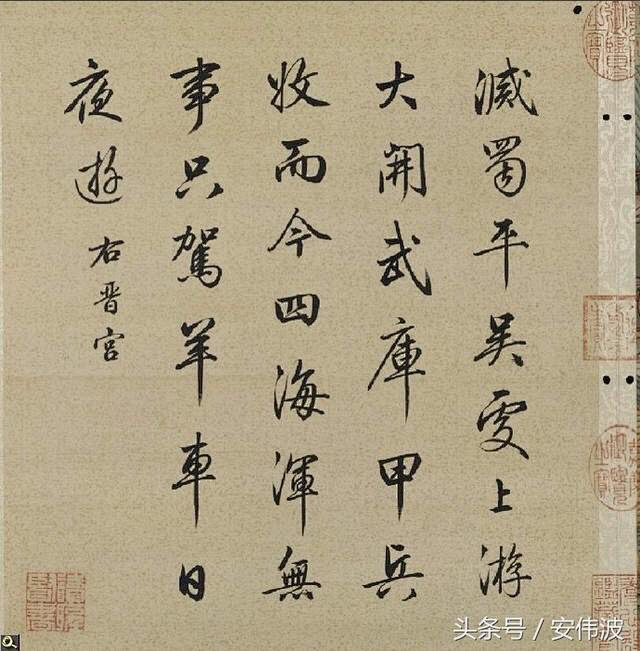 滅蜀平吳上游
大開武庫甲兵
收而今四海渾無
事只駕羊車日
夜遊 右晉宮
头条号 / 安伟波